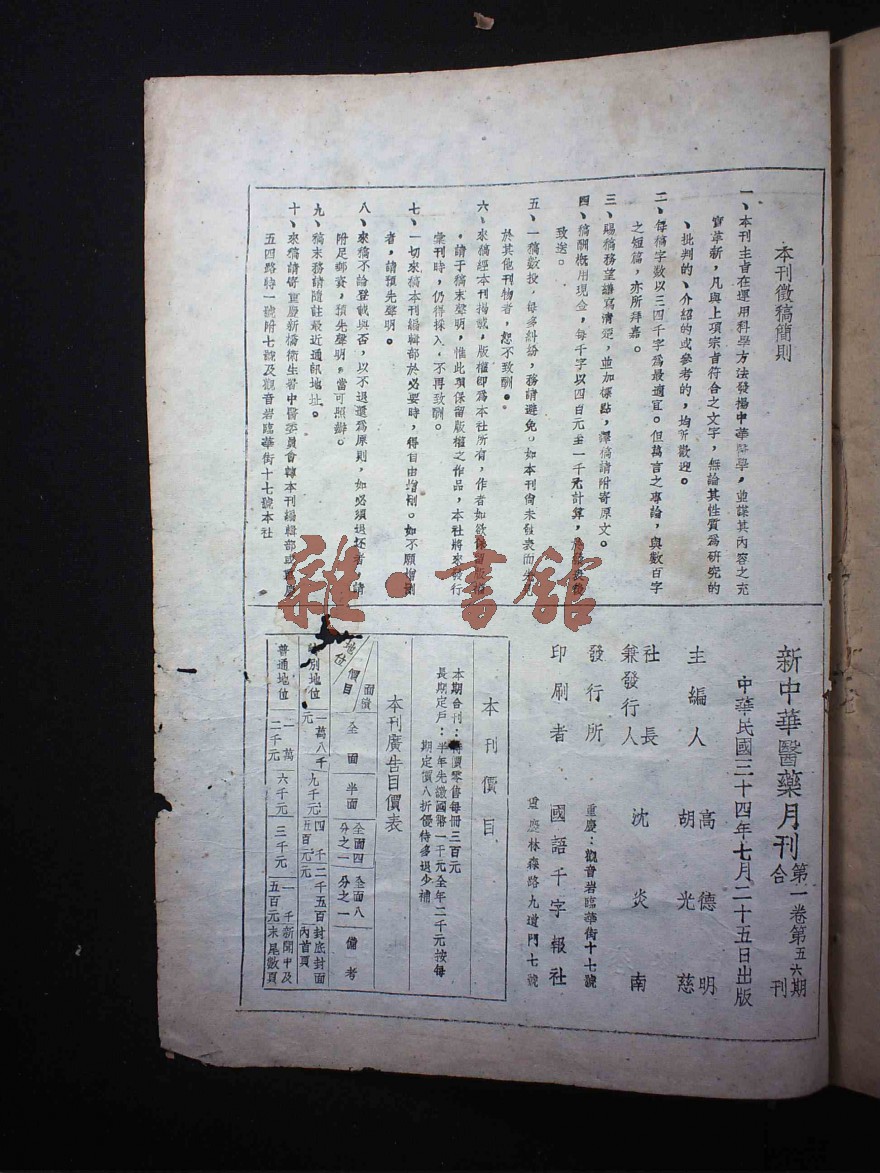 本刊徵稿簡則
一、本刊主旨在運用科學方法發揚中華醫學，並謀其內容之充
實革新，凡與上項宗旨符合之文字，無論其性質爲研究的
、批判的、介紹的或參考的，均所歡迎。
二、每稿字數以三四千字爲最適宜。但萬言之專論，與數百字
之短篇，亦所拜嘉。
三、賜稿務望謄寫清楚，並加標點，譯稿請附寄原文。
四、稿酬概用現金，每千字以四百元至一千元計算，
致送。
五、一稿數投，每多糾紛，務請避免。如本刊尚未發表而
於其他刊物者，恕不致酬。
六、來稿經本刊揭載，版權即爲本社所有，作者如欲保留版權
，請于稿末聲明，惟此項保留版權之作品，本社將來發行
彙刊時，仍得採入，不再致酬。
七、一切來稿本刊編輯部於必要時，得自由增刪。如不願增刪
者，請預先聲明。
八、來稿不論登載與否，以不退還爲原則，如必須退还者，請
附足郵資，預先聲明，當可照辦。
九、稿末務請隨註最近通訊地址。
十、來稿請寄重慶新橋衛生署中醫委員會轉本刊編輯部或重慶
五四路特一號附七號及觀音岩臨華街十七號本社
新中華醫藥月刊 第一卷第五六期合刊
中華民國三十四年七月二十五日出版
主編人 高德明 胡光慈
社長兼發行人 沈炎南
發行所 重慶：觀音岩臨華街十七號
印刷者 國語千字報社
重慶林森路九道門七號
本刊價目
本期合刊：特價零售每冊三百元
長期定戶：半年先繳國幣一千元全年二千元按每
期定價八折優待多退少補
本刊廣告目價表
面積 價目 地位 全面 半面 全面四分之一 全面八分之一 備考
特別地位 一萬八千元 九千元 四千五百元 二千五百元 封底封面內首頁
普通地位 一萬二千元 六千元 三千元 一千五百元 新聞中及末尾數頁
雜·書館